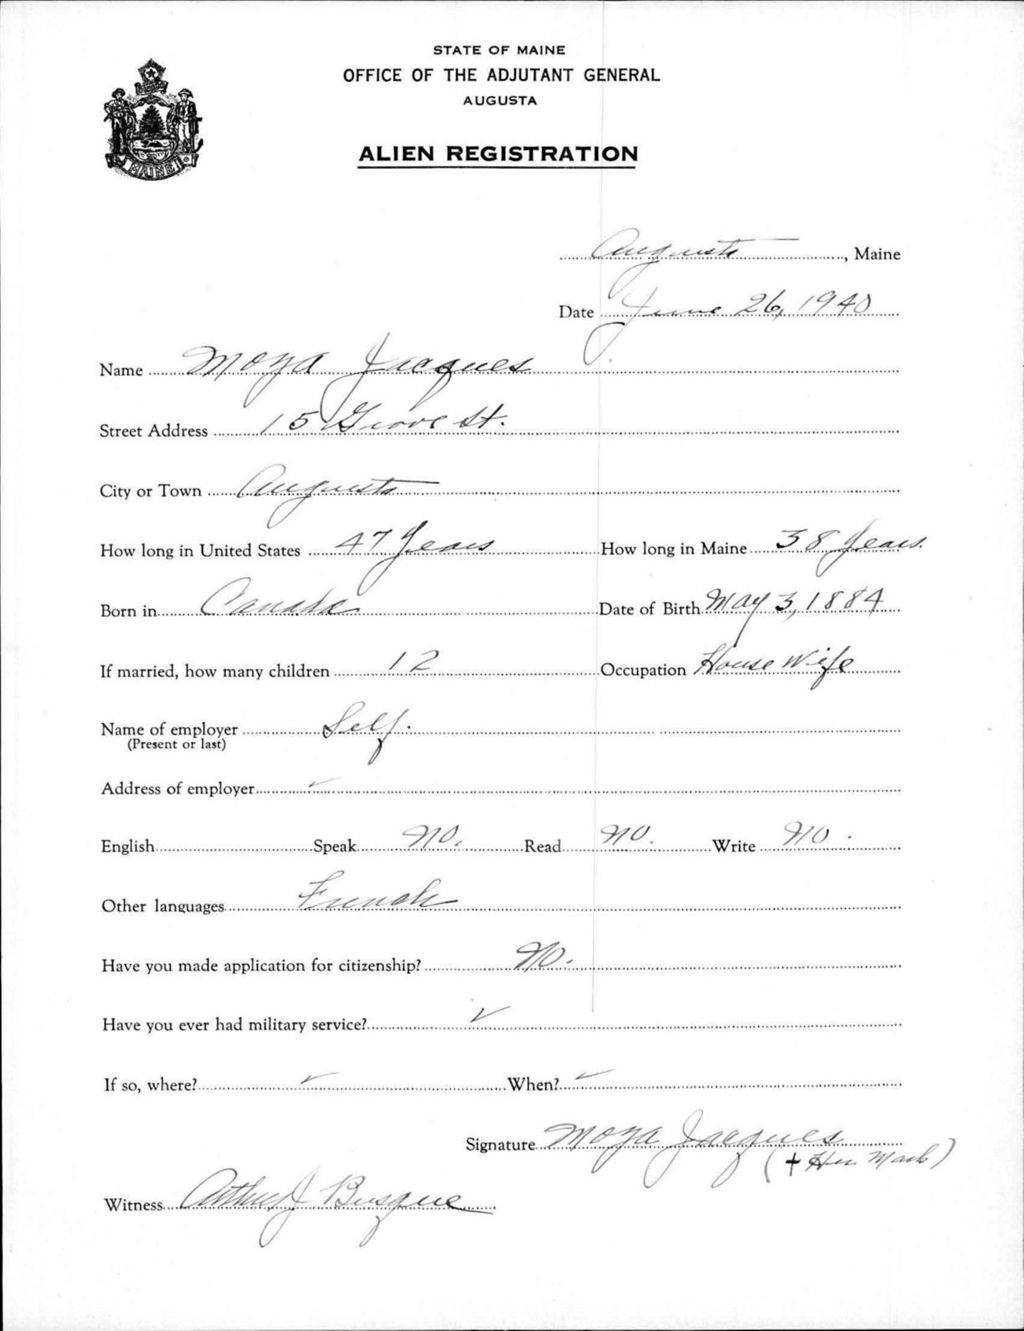 STATE OF MAINE
OFFICE OF THE ADJUTANT GENERAL
AUGUSTA
ALIEN REGISTRATION
MAINE
Augusta, Maine
Date June 26, 1940
Name Moza Jacques
Street Address 15 Grove St.
City or Town Augusta
How long in United States 47 Years How long in Maine 38 Years.
Born in Canada Date of Birth May 3, 1884
If married, how many children 12 Occupation House Wife
Name of employer Self.
(Present or last)
Address of employer ✓
English Speak No. Read No. Write No.
Other languages French
Have you made application for citizenship? No.
Have you ever had military service? ✓
If so, where? ✓ When? ✓
Signature Moza Jacques
(+ Her Mark)
Witness Arthur J Busque